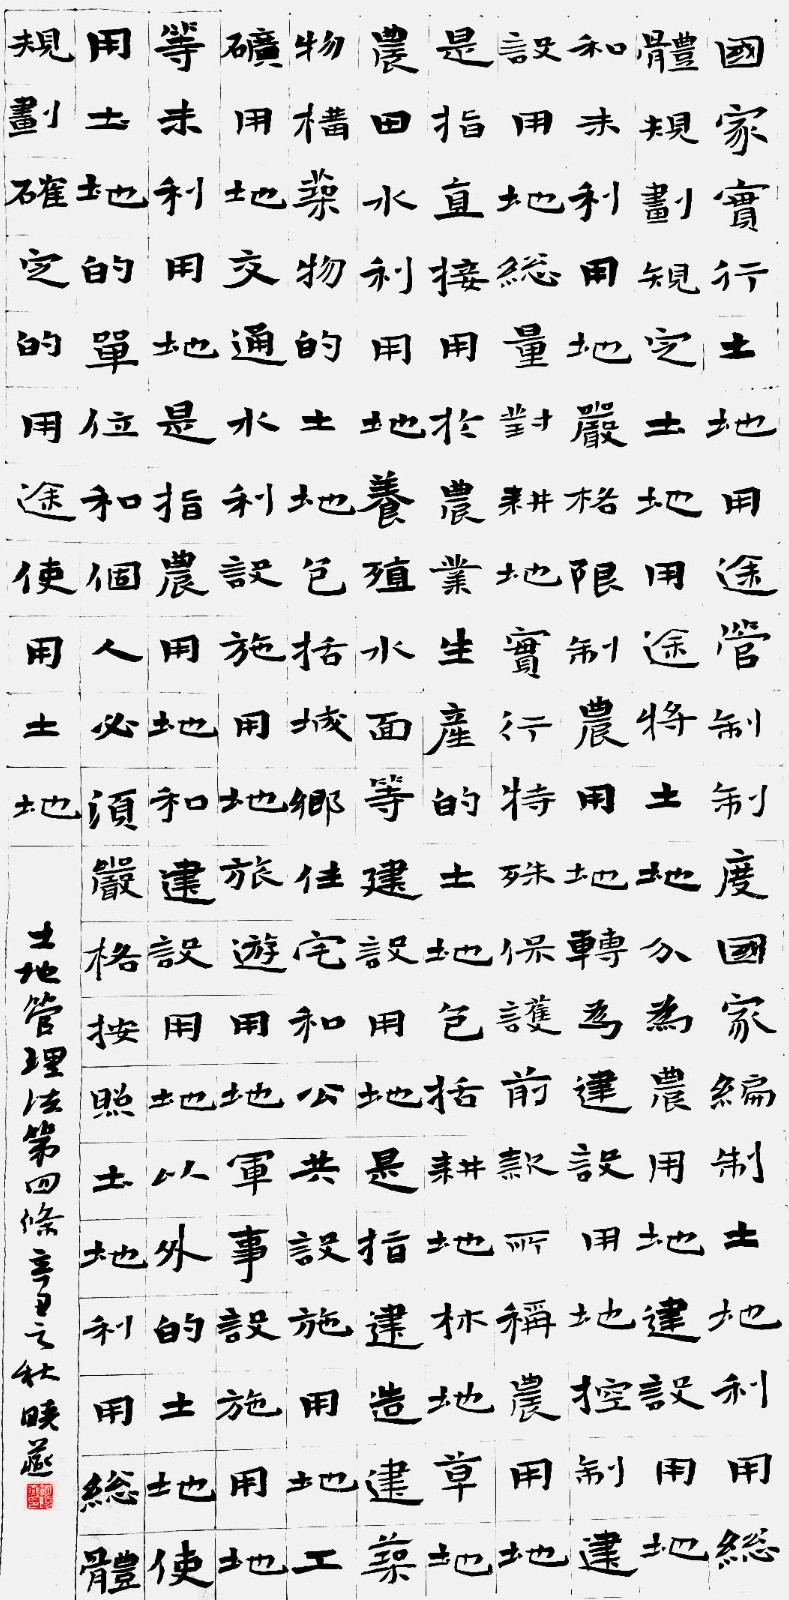 國家實行土地用途管制制度國家編制土地利用総
體規劃規定土地用途將土地分為農用地建設用地
和未利用地嚴格限制農用地轉為建設用地控制建
設用地総量對耕地實行特殊保護前款所稱農用地
是指直接用於農業生產的土地包括耕地林地草地
農田水利用地養殖水面等建設用地是指建造建築
物構築物的土地包括城鄉住宅和公共設施用地工
礦用地交通水利設施用地旅遊用地軍事設施用地
等未利用地是指農用地和建設用地以外的土地使
用土地的單位和個人必須嚴格按照土地利用総體
規劃確定的用途使用土地
土地管理法第四條辛丑之秋曉燕